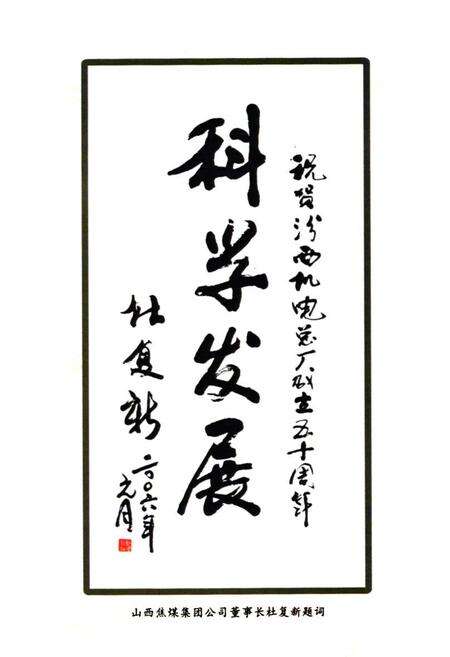 祝贺汾西机电总厂成立五十周年
科学发展
杜复新
二〇〇六年
元月
山西焦煤集团公司董事长杜复新题词